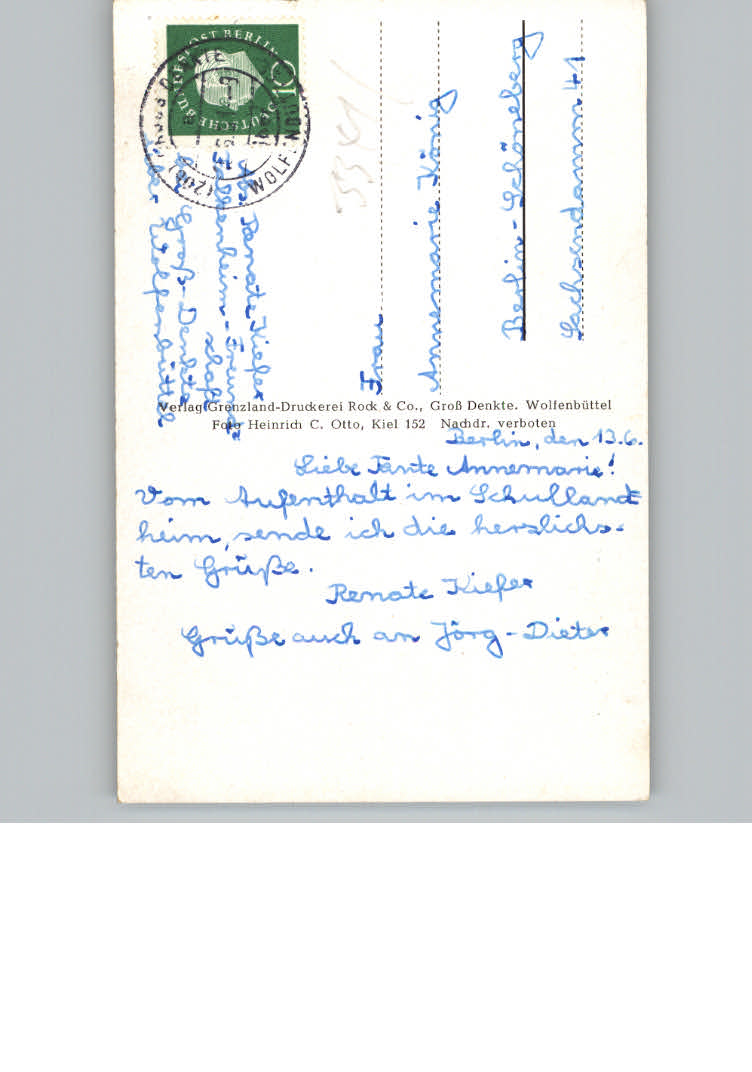 DEUTSCHE BUNDESPOST BERLIN
10
WOLFENBÜ
Abs. Renate Kiefer
Falkenheim-Freund
schaft
Groß-Denkte
über Wolfenbüttel
3341
Frau
Annemarie König
Berlin-Schöneberg
Sachsendamm 41
Verlag Grenzland-Druckerei Rock & Co., Groß Denkte. Wolfenbüttel
Foto Heinrich C. Otto, Kiel 152 Nachdr. verboten
Berlin, den 13.6.
Liebe Tante Annemarie!
Vom Aufenthalt im Schulland
heim, sende ich die herzlichs-
ten Grüße.
Renate Kiefer
Grüße auch an Jörg-Dieter